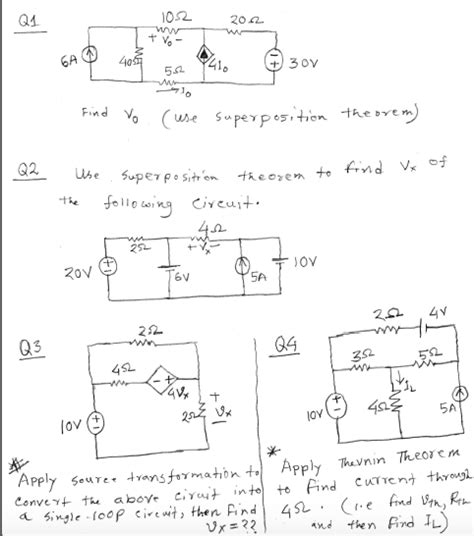 Q1
10Ω
20Ω
+ Vo -
6A
40Ω
4Io
30V
5Ω
Io
Find Vo (use superposition theorem)
Q2
Use superposition theorem to find Vx of
the following circuit.
4Ω
2Ω
+ Vx -
20V
6V
5A
10V
Q3
2Ω
4Ω
- +
4Vx
+
2Ω
Vx
-
10V
* Apply source transformation to
convert the above ciruit into
a single-loop circuit, then find
Vx = ??
Q4
2Ω
4V
3Ω
5Ω
IL
4Ω
10V
5A
* Apply Thevnin Theorem
to find current through
4Ω. (i.e find Vth, Rth
and then find IL)